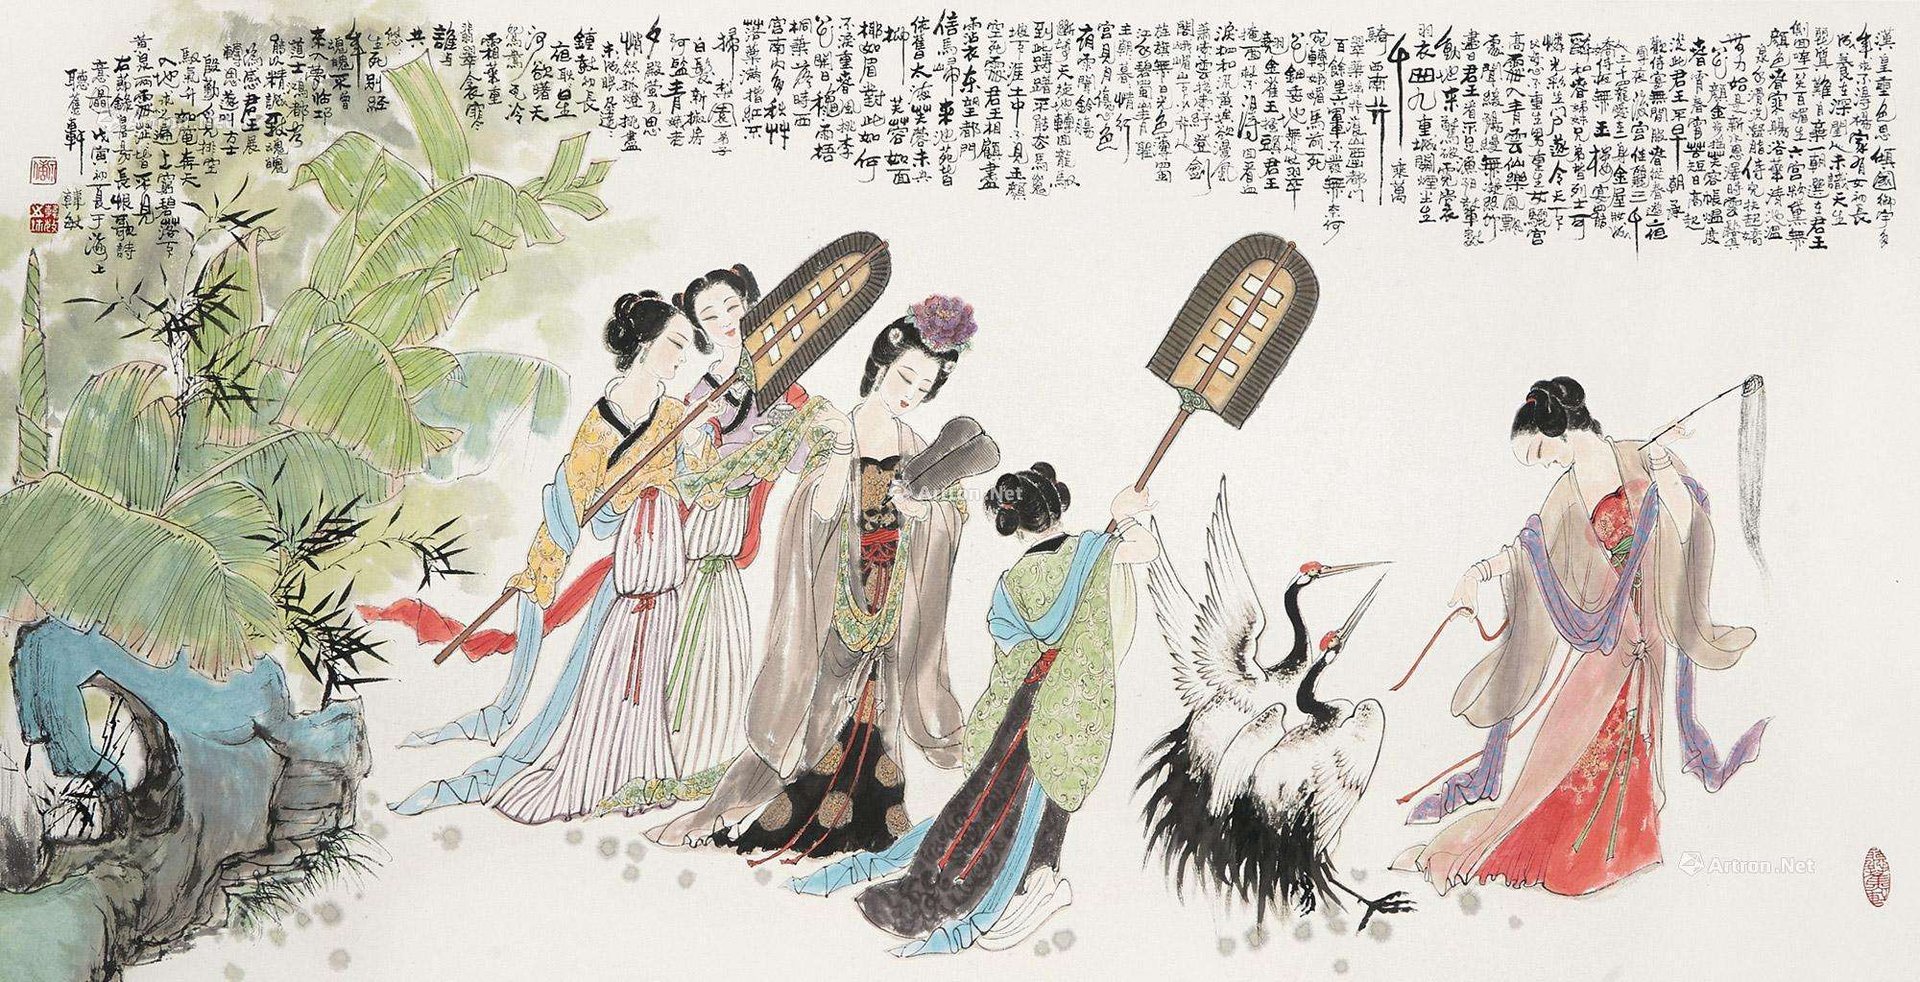 漢皇重色思傾國御宇多
年求不得楊家有女初長
成養在深閨人未識天生
麗質難自棄一朝選在君王
側回眸一笑百媚生六宮粉黛無
顏色春寒賜浴華清池溫
泉水滑洗凝脂侍兒扶起嬌
無力始是新恩澤時雲鬢
花顏金步搖芙蓉帳溫度
春宵春宵苦短日高起
從此君王不早朝承
歡侍宴無閒暇春從春遊夜
專夜後宮佳麗三千
人三千寵愛在一身金屋妝成
嬌侍夜玉樓宴罷
醉和春姊妹兄弟皆列土可
憐光彩生門戶遂令天下
父母心不重生男重生女驪宮
高處入青雲仙樂風飄
處處聞緩歌慢舞凝絲竹
盡日君王看不足漁陽鼙鼓
動地來驚破霓裳
羽衣曲九重城闕煙塵生
千乘萬
騎西南行
翠華搖搖行復止西出都門
百餘里六軍不發無奈何
宛轉娥媚馬前死
花鈿委地無人收翠
翹金雀玉搔頭君王
掩面救不得回看血
淚相和流黃埃散漫風
蕭索雲棧縈紆登劍
閣峨嵋山下少人行
旌旗無光日色薄蜀
江水碧蜀山青聖
主朝暮情行
宮見月傷心色
夜雨聞鈴腸
斷聲天旋地轉回龍馭
到此躊躇不能去馬嵬
坡下泥土中不見玉顏
空死處君王相顧盡
霑衣東望都門
信馬歸來池苑皆
依舊太液芙蓉未央
柳芙蓉如面
柳如眉對此如何
不淚垂春風桃李
花開日秋雨梧
桐葉落時西
宮南內多秋草
落葉滿階紅不
掃梨園弟子
白髮新椒房
阿監青娥老
夕殿螢飛思
悄然孤燈挑盡
未成眠遲遲
鐘鼓初長
夜耿耿星
河欲曙天
鴛鴦瓦冷
霜華重
翡翠衾寒
誰與
共
悠
生死別經
年
魂魄不曾
來入夢臨邛
道士鴻都客
能以精誠致魂魄
為感君王展
轉思遂叫方士
殷勤覓排空
馭氣升如電奔天
入地求之遍上窮碧落下
黃泉兩處茫茫皆不見
右節錄白居易長恨歌詩
意圖戊寅初夏于海上
聽蕉軒
韓敏
Artron.Net
Artron.Net